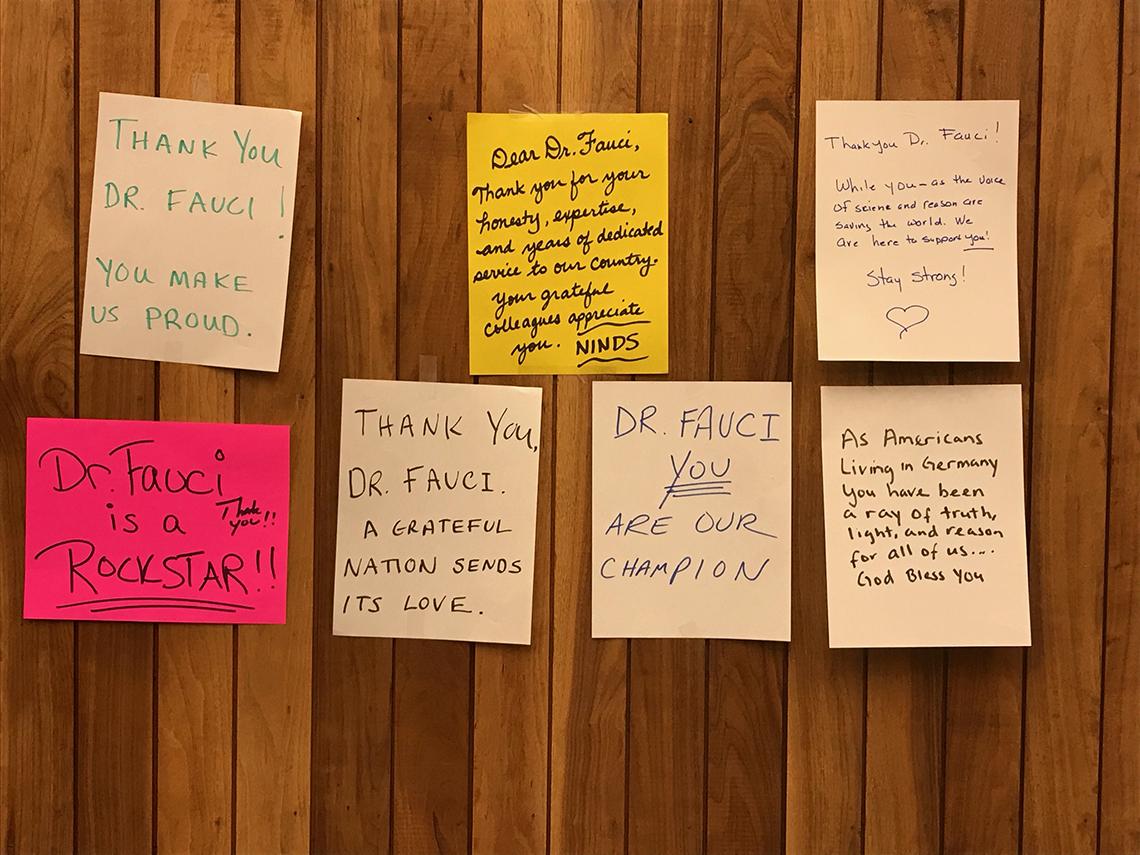 THANK YOU
DR. FAUCI !
YOU MAKE
US PROUD.
Dear Dr. Fauci,
Thank you for your
honesty, expertise,
and years of dedicated
service to our country.
Your grateful
colleagues appreciate
you. NINDS
Thank you Dr. Fauci!
While you - as the voice
of sciene and reason are
saving the world. We
are here to support you!
Stay strong!
Dr. Fauci
is a Thank
you!!
ROCKSTAR!!
THANK YOU,
DR. FAUCI.
A GRATEFUL
NATION SENDS
ITS LOVE.
DR. FAUCI
YOU
ARE OUR
CHAMPION
As Americans
Living in Germany
you have been
a ray of truth,
light, and reason
for all of us....
God Bless You